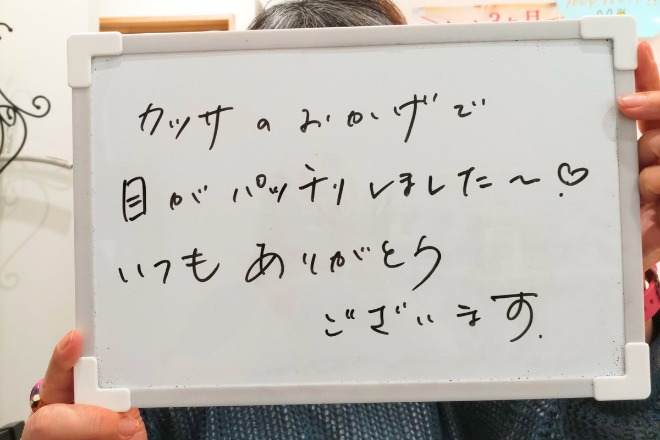 3ヶ月
カッサのおかげで
目がパッチリしました～♡
いつもありがとう
ございます.